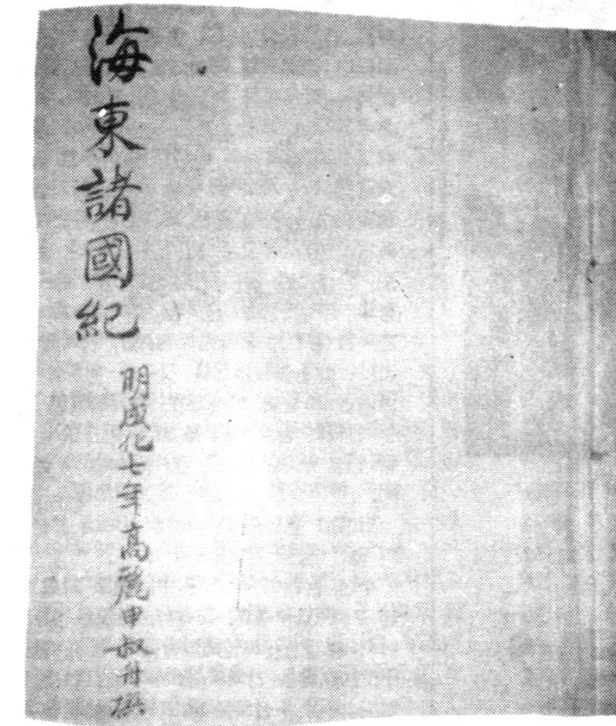 海東諸國紀
明成化七年高麗申叔舟撰